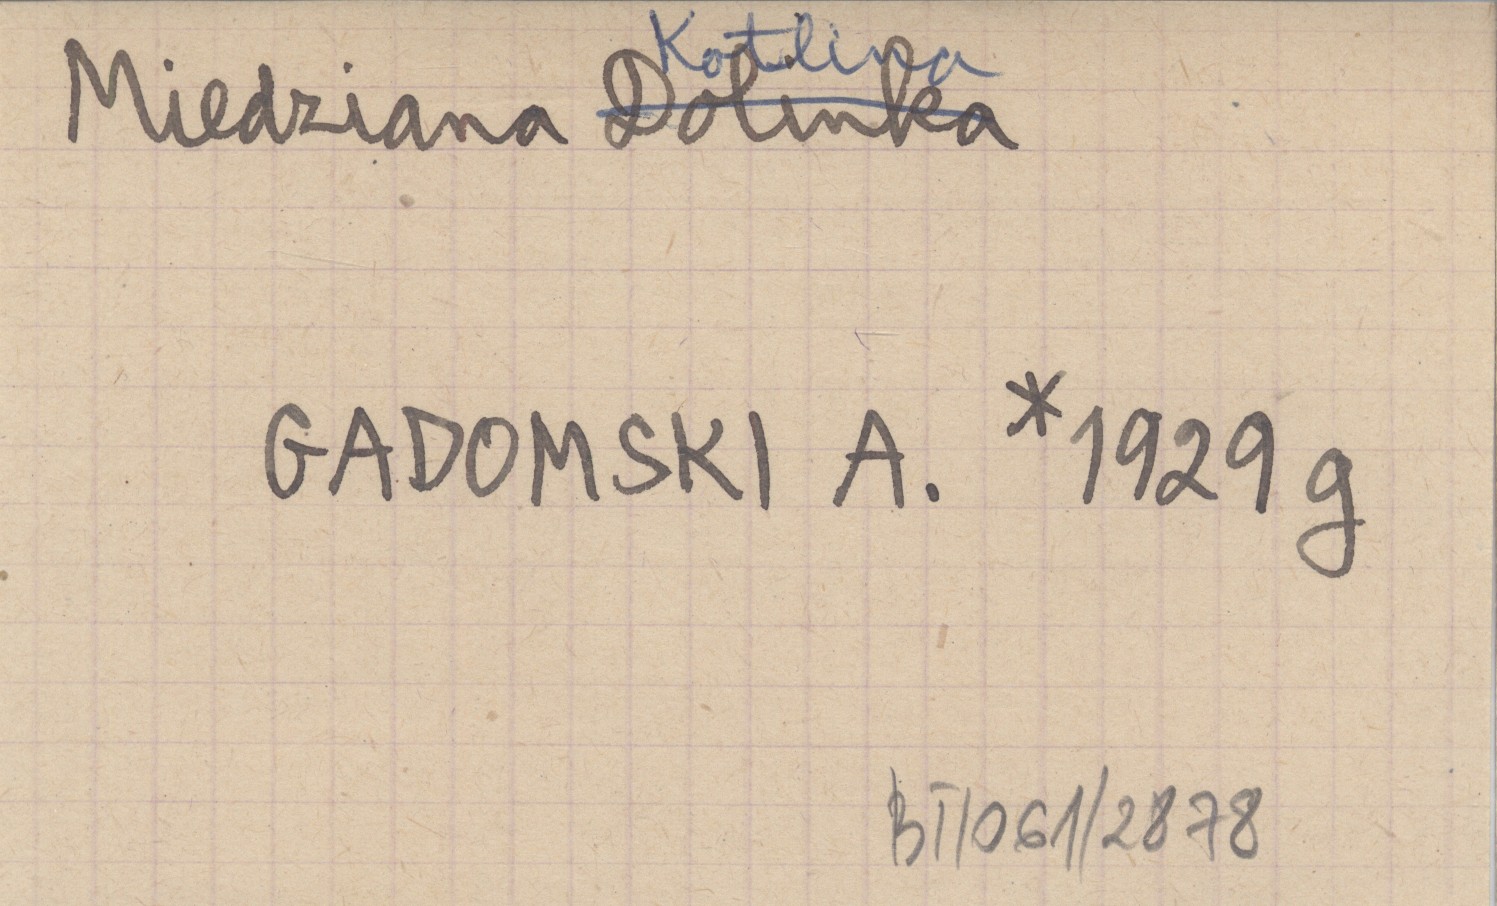 Kotlina
Miedziana Dolinka
GADOMSKI A. *1929 g
BT/061/2878